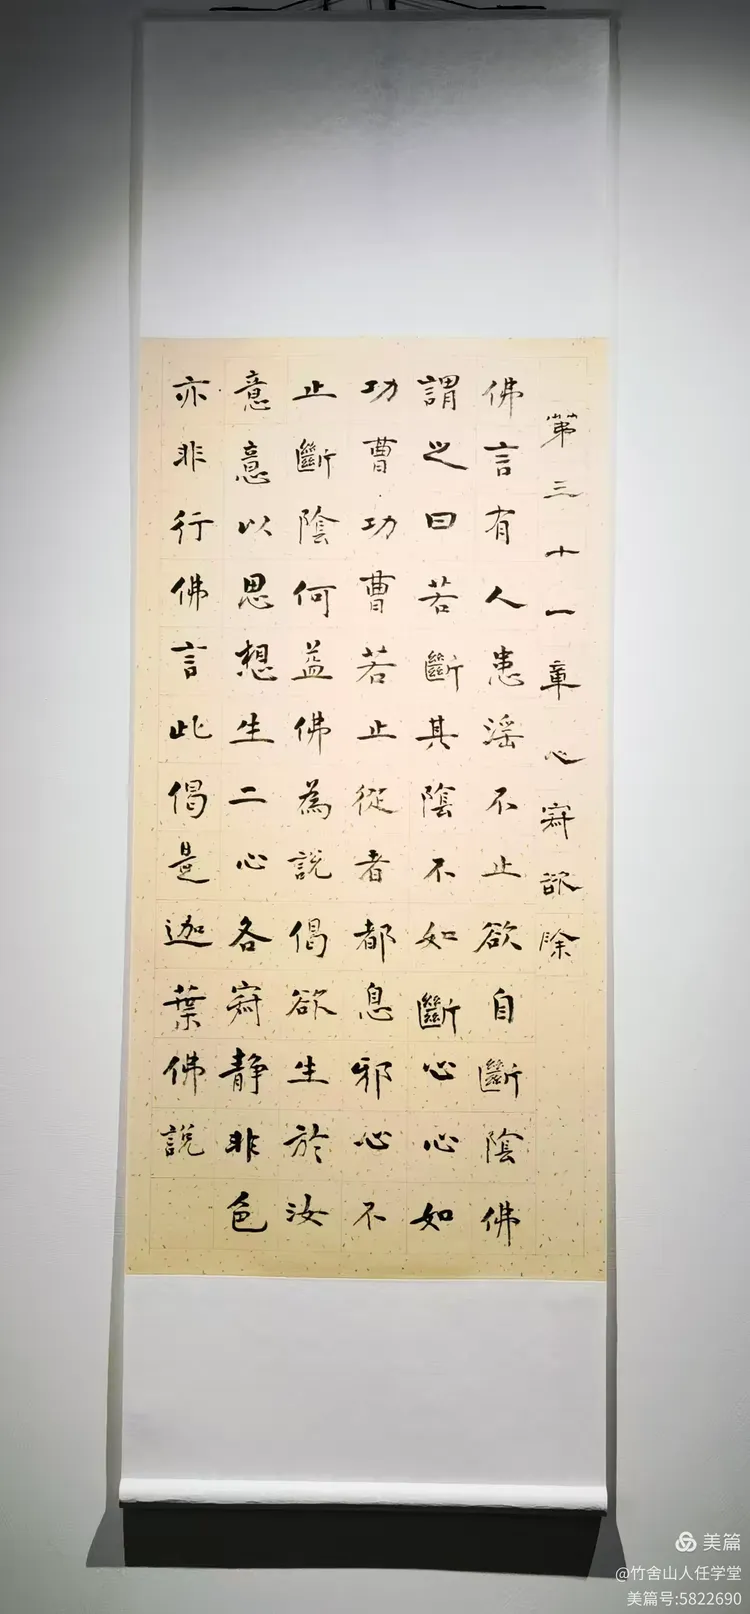 第三十一章心寂欲除
佛言有人患淫不止欲自斷陰佛
謂之曰若斷其陰不如斷心心如
功曹功曹若止從者都息邪心不
止斷陰何益佛為說偈欲生於汝
意意以思想生二心各寂靜非色
亦非行佛言此偈是迦葉佛說
美篇
@竹舍山人任学堂
美篇号:5822690